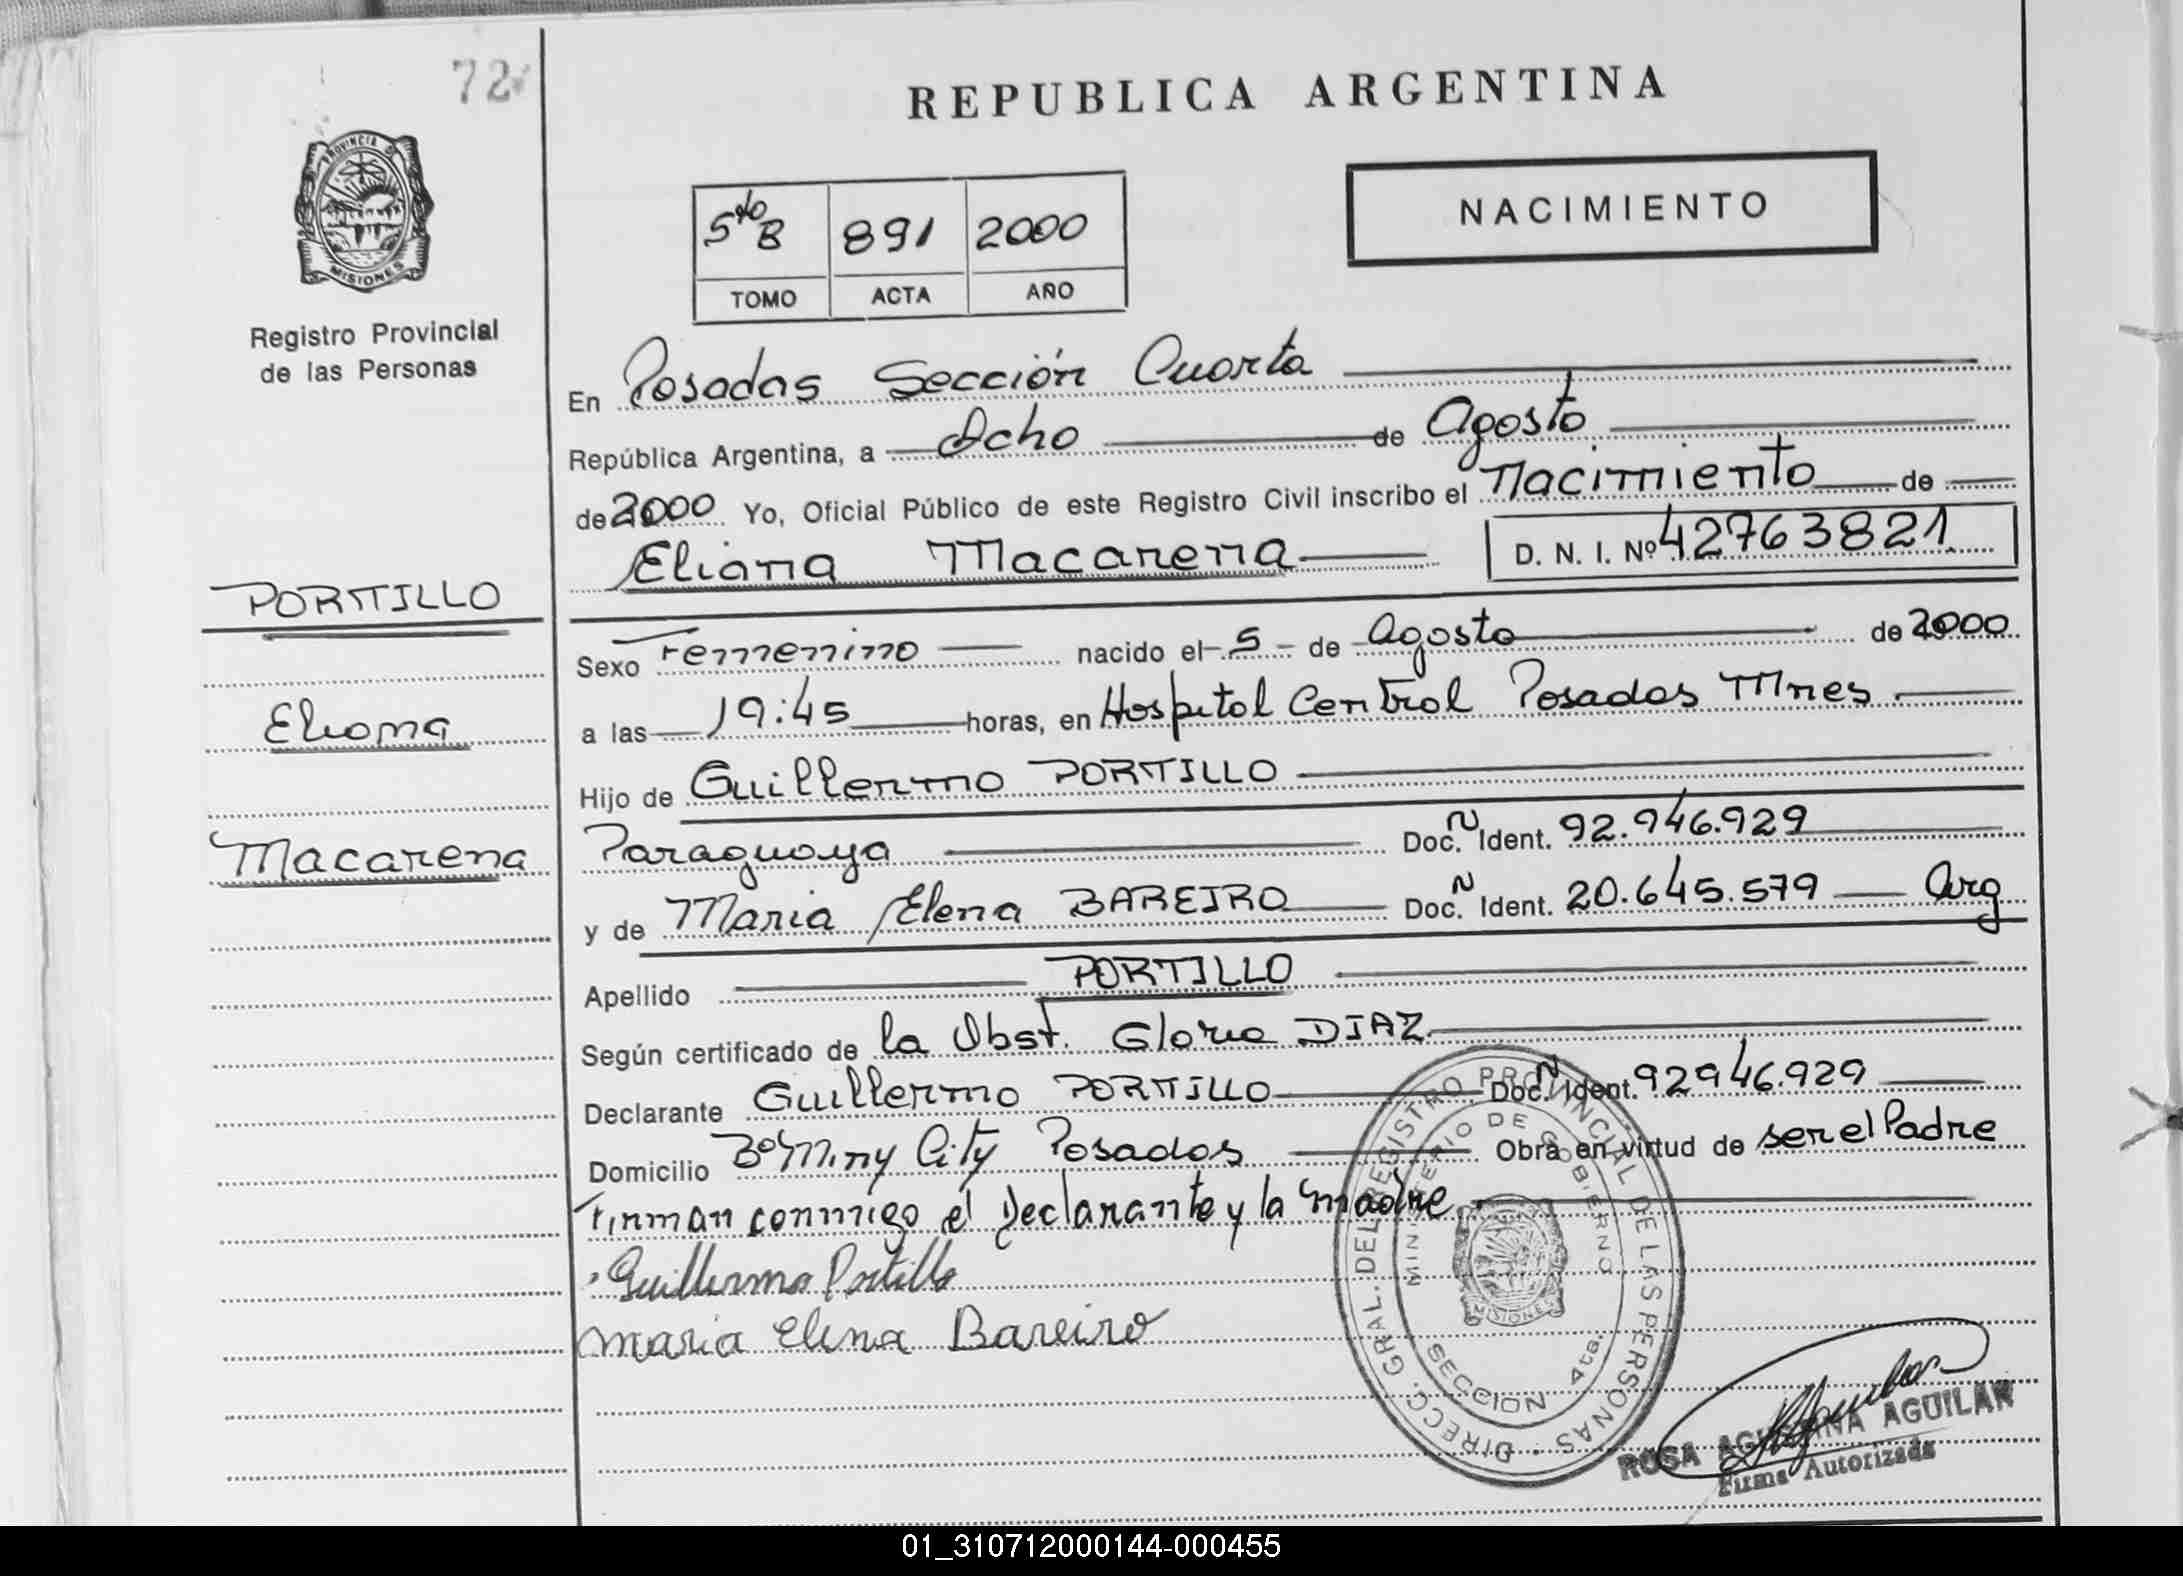 72
REPUBLICA ARGENTINA
PROVINCIA DE
MISIONES
Registro Provincial
de las Personas
5to B 891 2000
TOMO ACTA AÑO
NACIMIENTO
En Posadas Sección Cuarta
República Argentina, a Ocho de Agosto
de 2000 Yo, Oficial Público de este Registro Civil inscribo el Nacimiento de
Eliana Macarena D. N. I. Nº 42763821
PORTILLO
Eliana
Macarena
Sexo Femenino nacido el 5 de Agosto de 2000
a las 19:45 horas, en Hospital Central Posadas Mnes
Hijo de Guillermo PORTILLO
Paraguaya Doc. N Ident. 92.946.929
y de Maria Elena BAREIRO Doc. N Ident. 20.645.579 Arg
Apellido PORTILLO
Según certificado de la Obst. Gloria DIAZ
Declarante Guillermo PORTILLO Doc. N Ident. 92946.929
Domicilio Bo Miny City Posadas Obra en virtud de ser el Padre
Firman conmigo el Declarante y la Madre
Guillermo Portillo
Maria Elena Bareiro
DIRECC. GRAL. DEL REGISTRO PROVINCIAL DE LAS PERSONAS
MINISTERIO DE GOBIERNO
MISIONES
SECCION 4ta.
ROSA AGUSTINA AGUILAR
Firma Autorizada
01_310712000144-000455